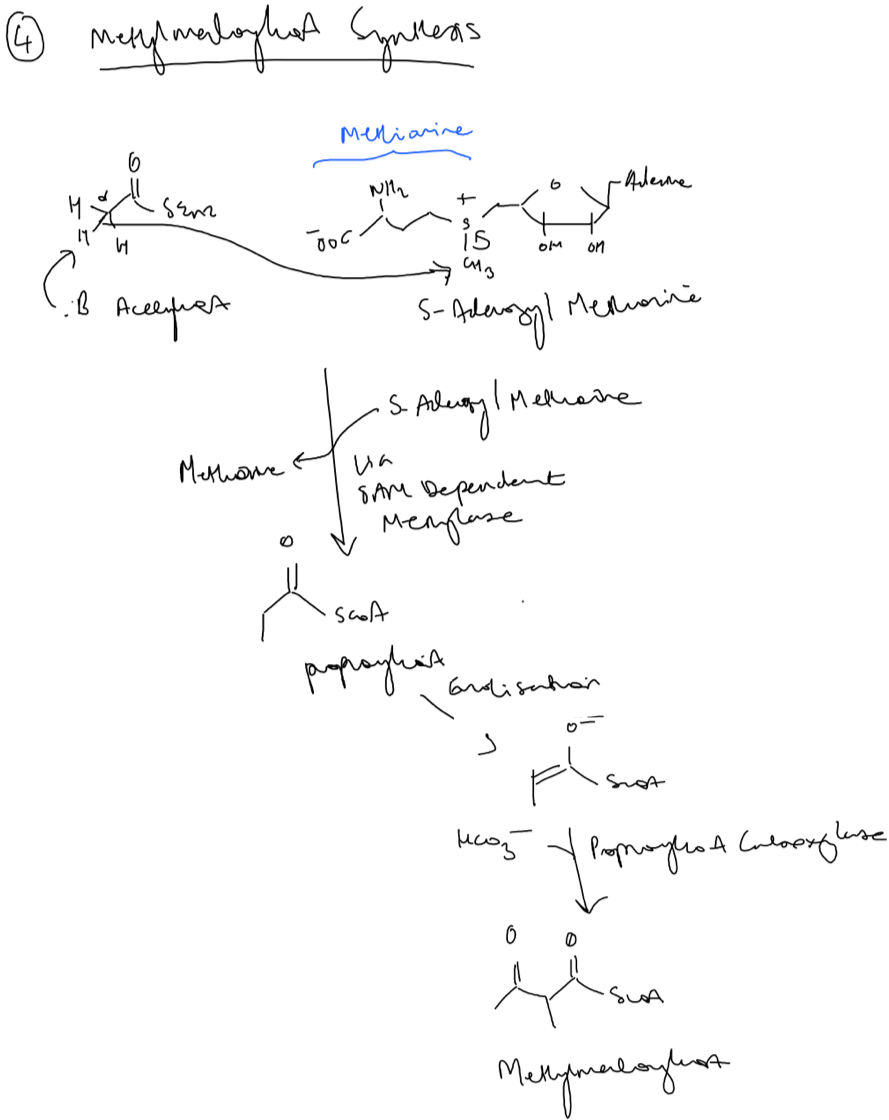 ④ Methylmalonyl CoA Synthesis
Methionine
O
H α SEnz
H H
:B Acetyl CoA
NH₂
⁻OOC
+
S
CH₃
O Adenine
OH OH
S-Adenosyl Methionine
S-Adenosyl Methionine
Methionine
Via
SAM Dependent
Methylase
O
SCoA
propionyl CoA
Enolisation
O⁻
SCoA
HCO₃⁻ Propionyl CoA Carboxylase
O O
SCoA
Methylmalonyl CoA